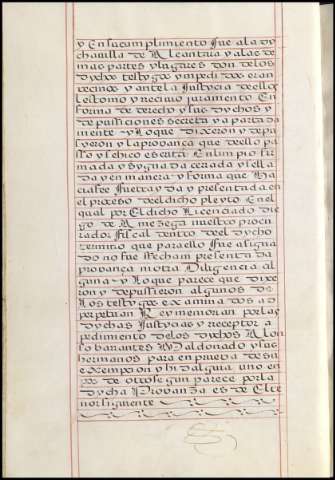 y En su cumplimiento fue a la dy
cha villa de Alcantara y a las de
mas partes y lugares donde los
dychos testygos y mpedidos eran
vecinos y ante la Justycia dellos
les tomo y recivio juramento En
forma de derecho y sus dychos y
depussiciones secreta y aparta da
mente y Lo que dixeron y depu
syeron y la provança que dello pa
sso y se hico escrita En limpio fir
mada y sygnada cerrada y sella
da y en manera y forma que ha
cia fee fue trayda y presentada en
el proceso del dicho pleyto En el
qual por El dicho Licenciado die
go de Amezaga nuestro procu
rador fiscal dentro del dycho
termino que para ello fue asigna
do no fue hecha ni presentada
provança ni otra Diligencia al
guna y Lo que parece que dixe
ron y depussieron algunos de
Los testygos examinados ad
perpetuan Rey memorian por las
dychas Justycias y receptor a
pedimiento de los dychos Alon
so barantes Maldonado y sus
hermanos para en prueva de su
exempcion y hidalguia uno en
pos de otro segun parece por la
dycha Provanza es de El te
nor siguiente